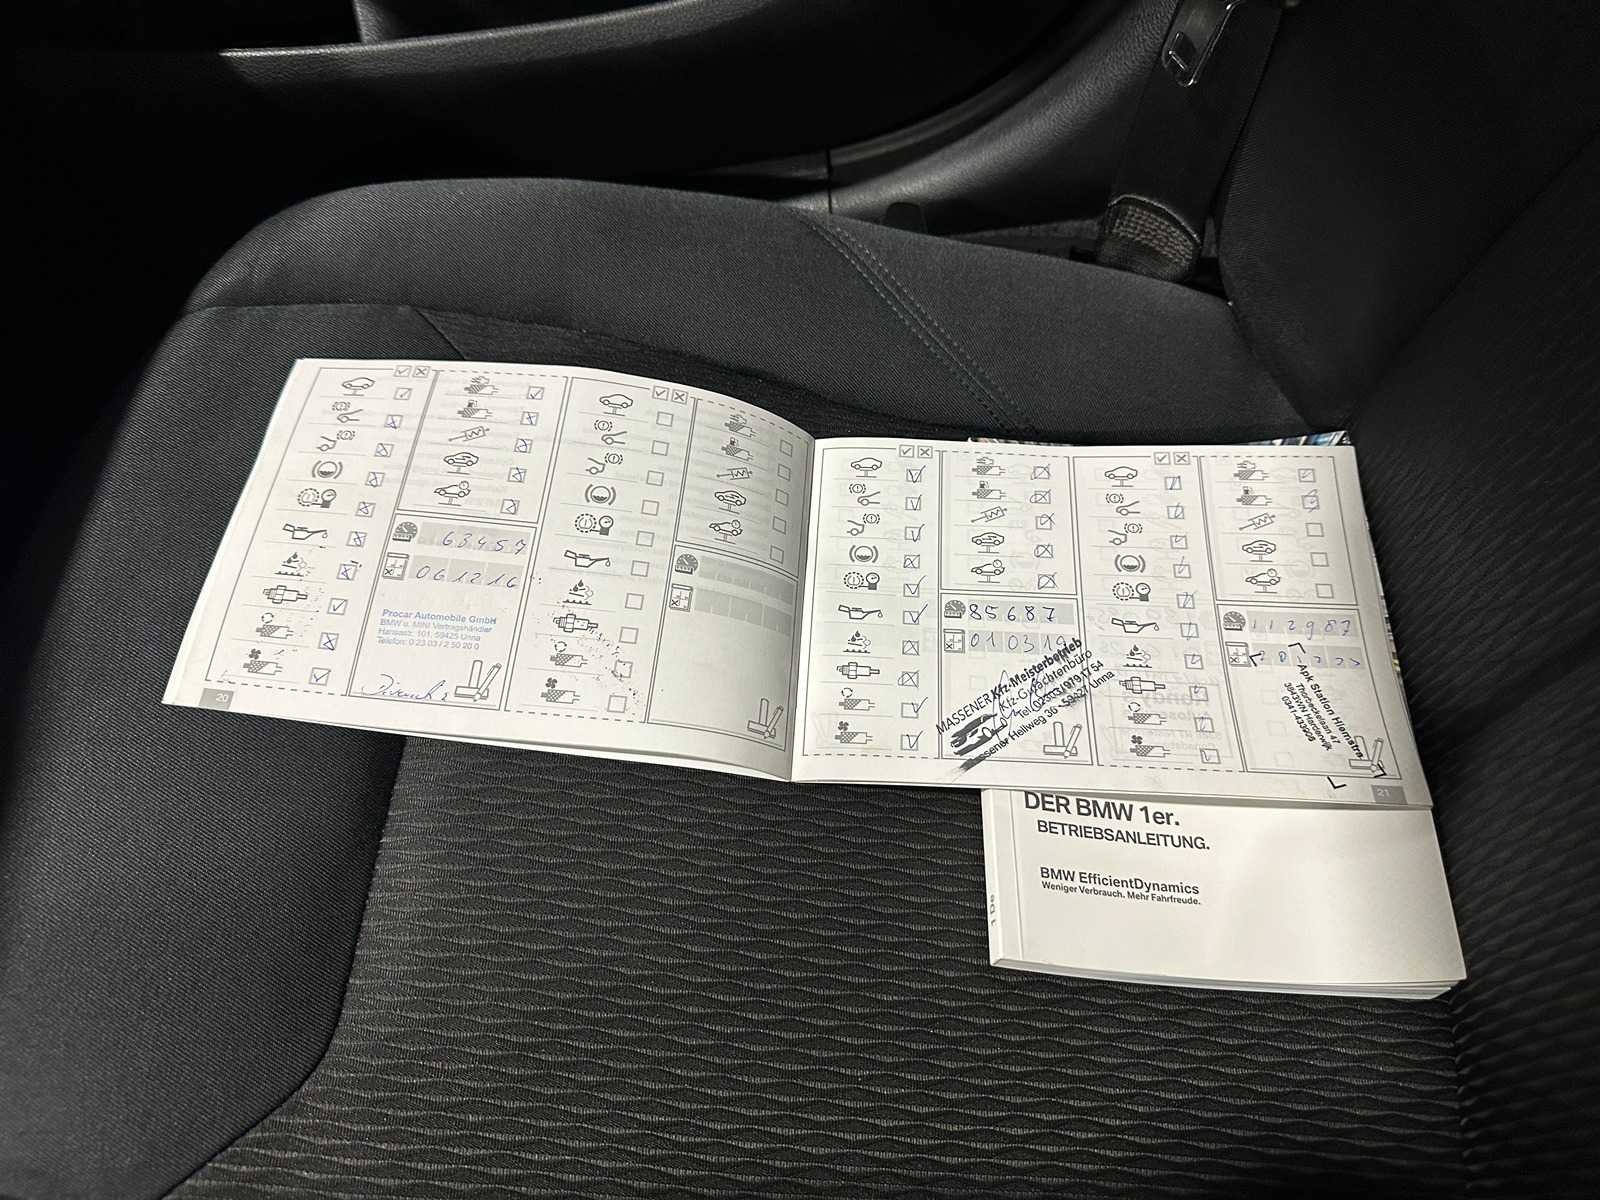 63457
061216
Procar Automobile GmbH
BMW u. MINI Vertragshändler
Hansastr. 101, 59425 Unna
Telefon: 0 23 03 / 2 50 20 0
20
85687
010319
MASSENER Kfz-Meisterbetrieb
Kfz-Gutachtenbüro
Massener Hellweg 36 · 59427 Unna
112987
Apk Station Hiemstra
Thorbeckelaan 47
Harderwijk
21
DER BMW 1er.
BETRIEBSANLEITUNG.
BMW EfficientDynamics
Weniger Verbrauch. Mehr Fahrfreude.
1 De